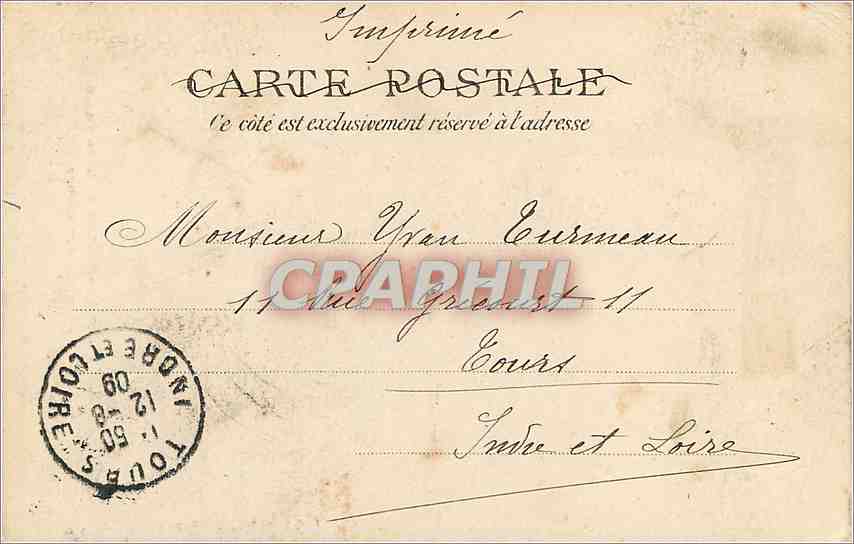 Imprimé
CARTE POSTALE
Ce côté est exclusivement réservé à l'adresse
Monsieur Yvan Turmeau
CPAPHIL
11 Rue Grécourt 11
Tours
Indre et Loire
TOURS INDRE ET LOIRE
50
12 -8
09